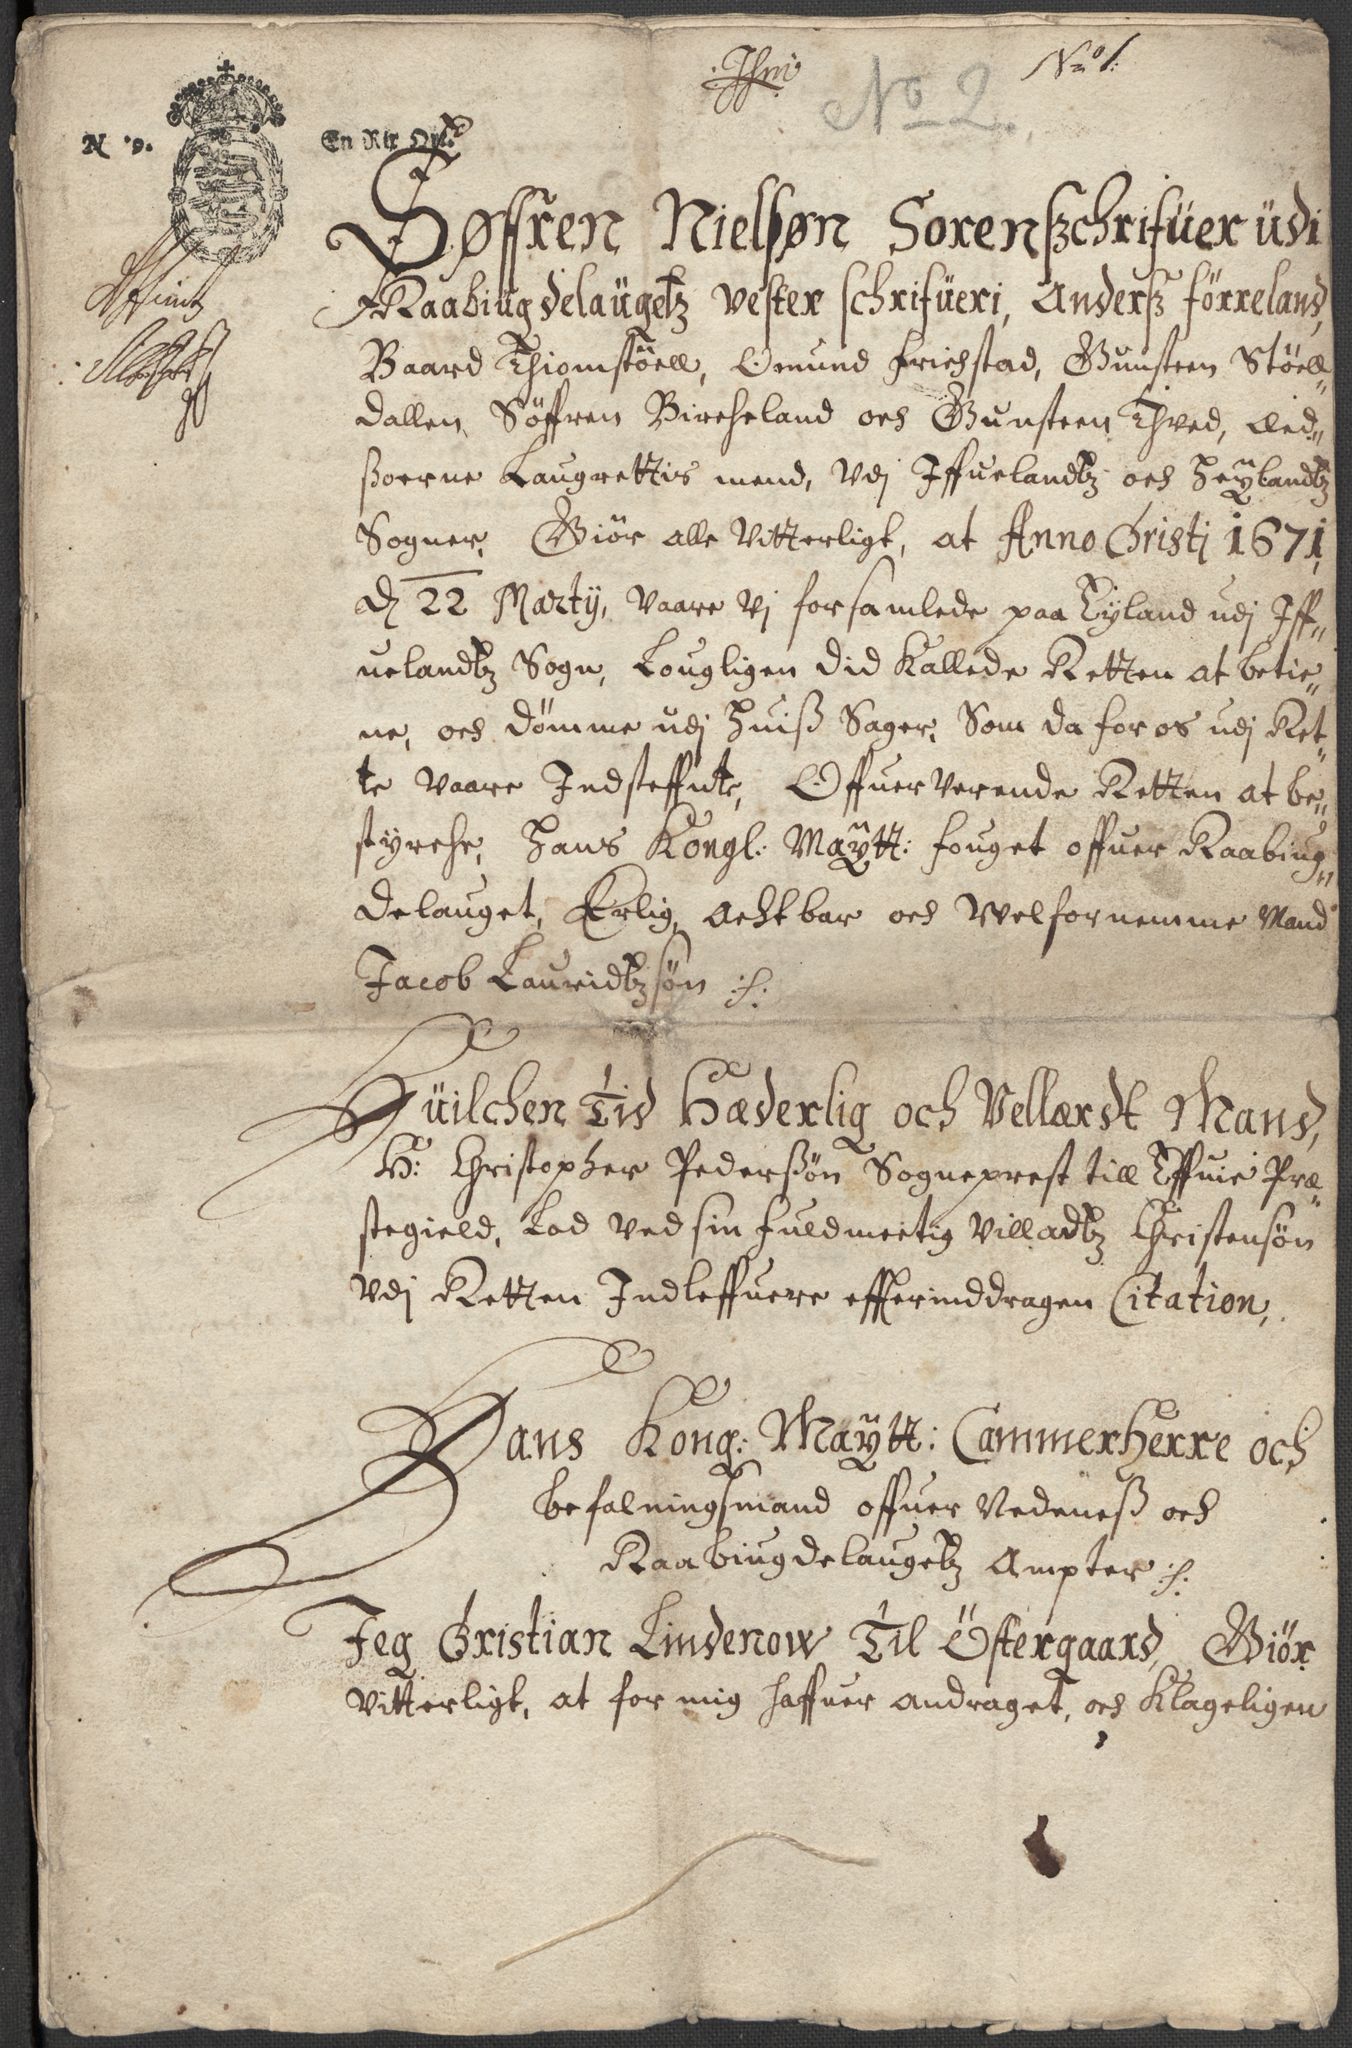 No 1:
No 2.
N 9. En Rix Ort
Søffren Nielsøn Sorenszchrifüer üdi
Raabiugdelaügetz vester schrifüeri, Andersz förreland,
Baard Thiomstöell, Omund Frichstad, Gunsteen Stöell„
dallen, Söffren Bircheland och Gunsteen Thved, æed„
soerne Laugrettis mend, Vdj Iffuelandtz och Heÿlandtz
Sogner, Giör alle Vitterligt, at Anno Christj 1671,
dj 22 Martij, Vaare Vj forsamlede paa Tyland udj Iff„
uelandtz Sogn, Lougligen did Kallede Retten at betie„
ne, och dömme udj Huiß Sager, Som da for os udj Ret„
te Vaare Indsteffnte, Offuerverende Retten at be„
styrche, Hans Kongl: Maÿtt: fouget offuer Raabiug„
delauget, Erlig, Achtbar och Welfornemme Mand
Jacob Lauridtzsön ://:
Hüilchen Tid Hæderlig och Vellærdt Mand,
H: Christopher Pedersön Sogneprest till Effuie Præ„
stegield, Lod Ved sin fuldmectig Villadtz Christensön
Vdj Retten Indleffuere effterinddragen Citation,
Hans Kong: Maÿtt: CammerHerre och
befalningsmand offuer Nedeneß och
Raabiugdelaugetz Ampter ://:
Jeg Christian Lindenow Til Östergaard, Giör
Vitterligt, at for mig haffuer andraget, och Klageligen